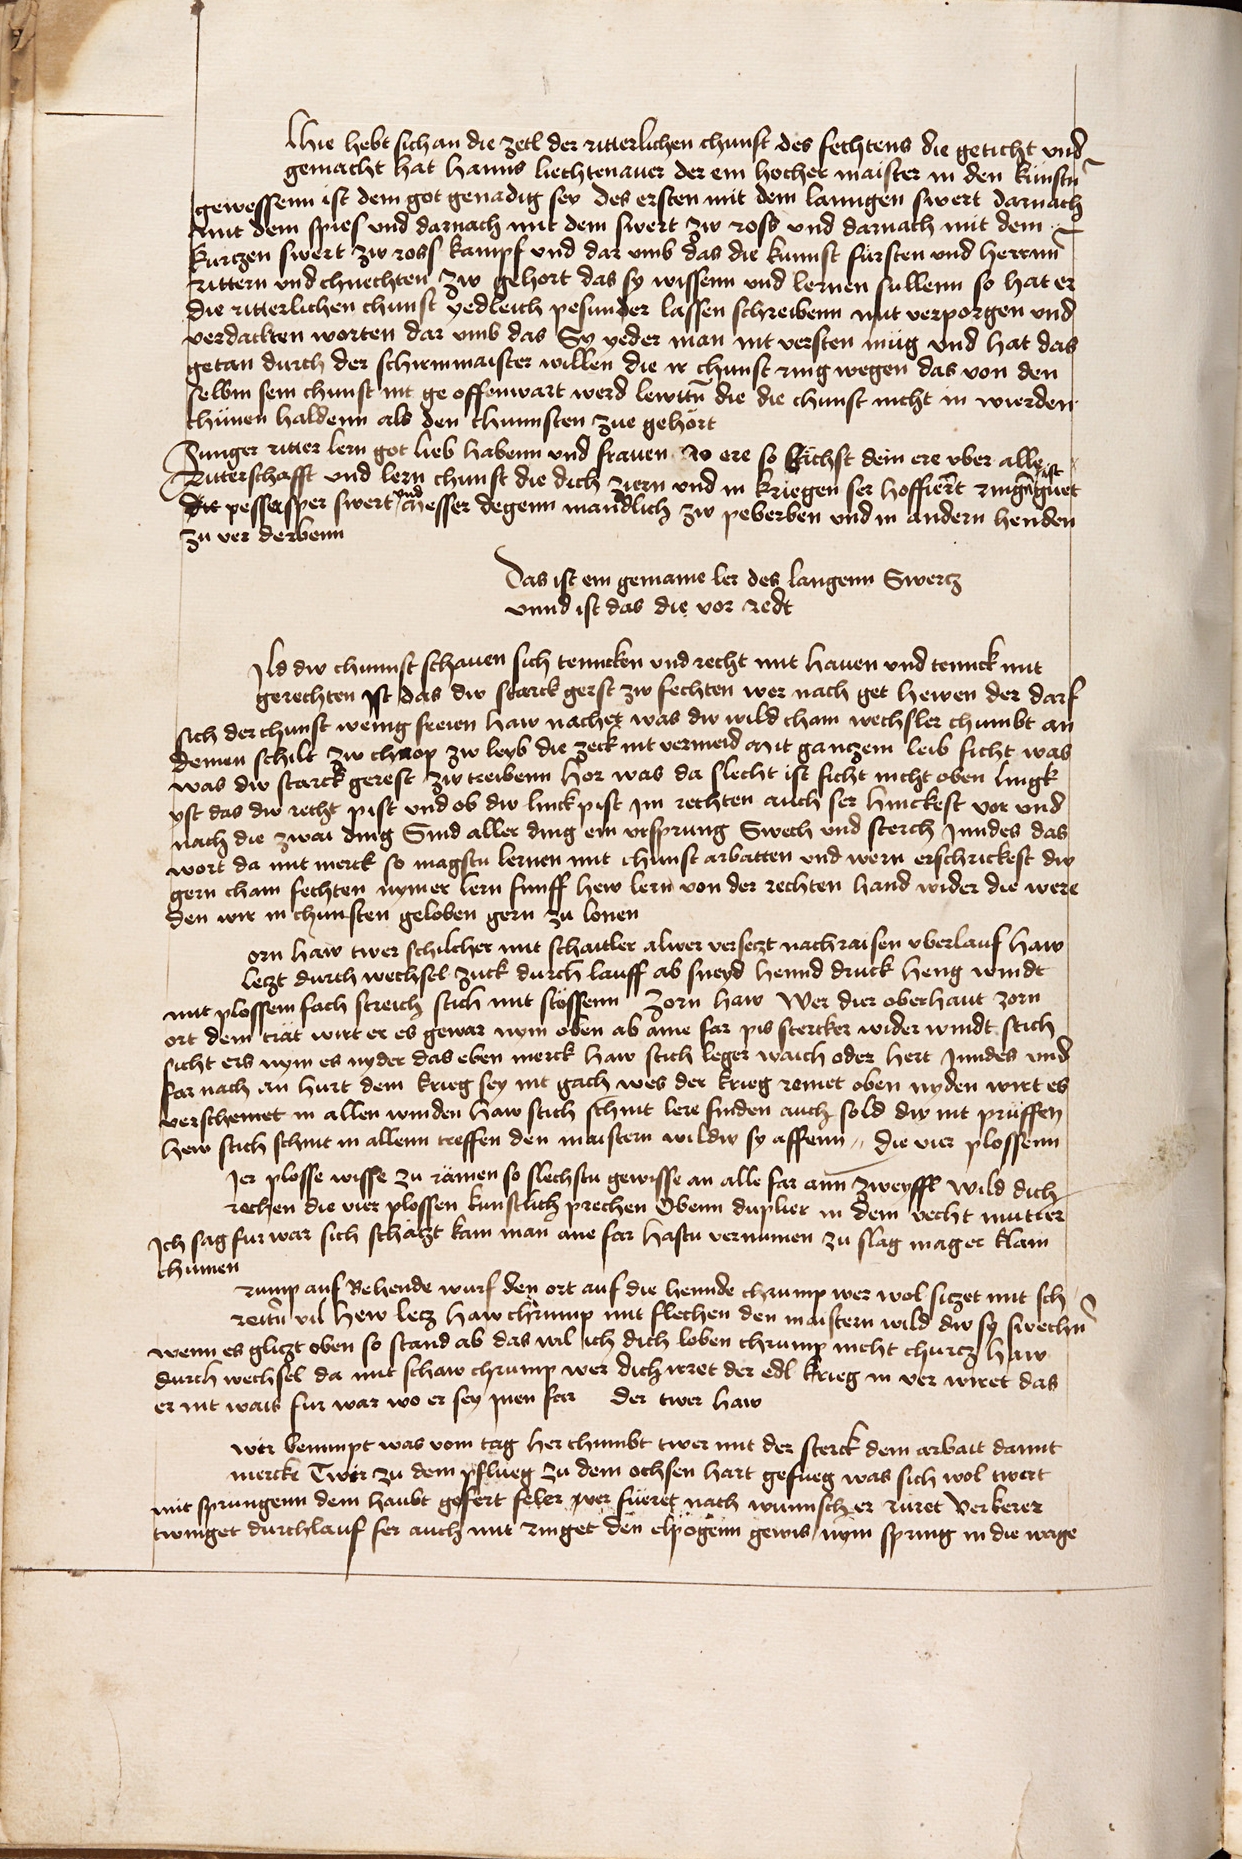 Hie hebt sich an die zetl der ritterlichen chunst des fechtens die geticht vnd
gemacht hat hanns liechtenauer der ein hocher maister in den künstn̄
gewessenn ist dem got genadig sey des ersten mit dem lanngen swert darnach
mit dem spies vnd darnach mit dem swert zw ross vnd darnach mit dem
kurczen swert zw ross kampf vnd dar vmb das die kunnst fürsten vnd herrnn̄
rittern vnd chnechten zw gehort das sy wissenn vnd lernen sullenn so hat er
die ritterlichen chunst yedleich pesunder lassen schreibenn mit verporgen vnd
verdackten worten dar vmb das Sy yeder man nit versten müg vnd hat das
getan durch der schirmmaister willen die ir chunst ring wegen das von den
selbm sein chunst nit ge offenwart werd lewttn̄ die die chunst nicht in wierden
chünen haldenn als den chunnsten zue gehört
Junger ritter lern got lieb habenn vnd frauen Jo ere so wächst dein ere vber alle
Ritterschafft vnd lern chunst die dich ziern vnd in kriegen ser hoffiert ringn̄s ist guet
die pesser sper swert vnd messer degenn mandlich zw peberben vnd in andern henden
zu ver derbenn
Das ist ein gemaine ler des langenn Swertz
vnnd ist das die vor redt
Ild dw chunnst schauen sich tenncken vnd recht mit hauen vnd tennck mit
gerechten Ist das dw starck gerst zw fechten wer nach get hewen der darf
sich der chunst wenig freien haw nachet was dw wild cham wechsler chumbt an
deinen schilt zw chnop zw leyb die zeck nit vermeid Mit ganczem leib ficht was
was dw starck gerest zw treibenn hor was da slecht ist ficht nicht oben lingk
yst das dw recht pist vnd ob dw linck pist Im rechten auch ser hinckest vor vnd
nach die zwai ding Sind aller ding ein vrsprung Swech vnd sterch Inndes das
wort da mit merck so magstu lernen mit chunst arbatten vnd wern erschrickest dw
gern cham fechten nymer lern funff hew lern von der rechten hand wider die were
den wir in chunsten geloben gern zu lonen
orn haw twer schilcher mit schaitler alber versetzt nachraisen vberlauf haw
letzt durch wechsel zuck durch lauff ab sneyd hennd druck heng windt
mit plossem fach streich stich mit stössenn Zorn haw Wer dier oberhaut zorn
ort dem trät wirt er es gewar nym oben ab ane far pis stercker wider windt stich
sicht ers nym es nyder das eben merck haw stich leger waich oder hert Inndes vnd
far nach an hurt dem krieg sey nit gach wes der krieg remet oben nyden wirt es
verschemet in allen winden haw stich schnit lere finden auch sold dw nit prüffen
hew stich schnit in allenn treffen den maistern wildw sy affenn die vier plossenn
Ier plosse wisse zu rämen so slechstu gewisse an alle far ann zweyffl Wild dich
rechen die vier plossen kunstlich prechen Obenn duplier in dem recht mutier
Ich sag fur war sich schätzt kain man ane far hastu vernumen zu slag mager klain
chumen
rump auf Behende wurf den ort auf die hennde chrump wer wol siczet mit sch
reitn̄ vil hew letz haw chrump mit flechen den maistern wild dw sy swechn̄
wenn es gliczt oben so stand ab das wil ich dich loben chrump nicht churcz haw
durch wechsel da mit schaw chrump wer dich irret der edl krieg in ver wiret das
er nit wais fur war wo er sey inen far der twer haw
wer benimpt was vom tag her chumbt twer mit der sterck dem arbait damit
mercke Twer zu dem pflueg zu dem ochsen hart gefueg was sich wol twert
mit sprungenn dem haubt gefert feler wer füret nach wunnsch er rüret Verkerer
twinget durchlauf fer auch mit ringet den elpögenn gewis nym spring in die wage